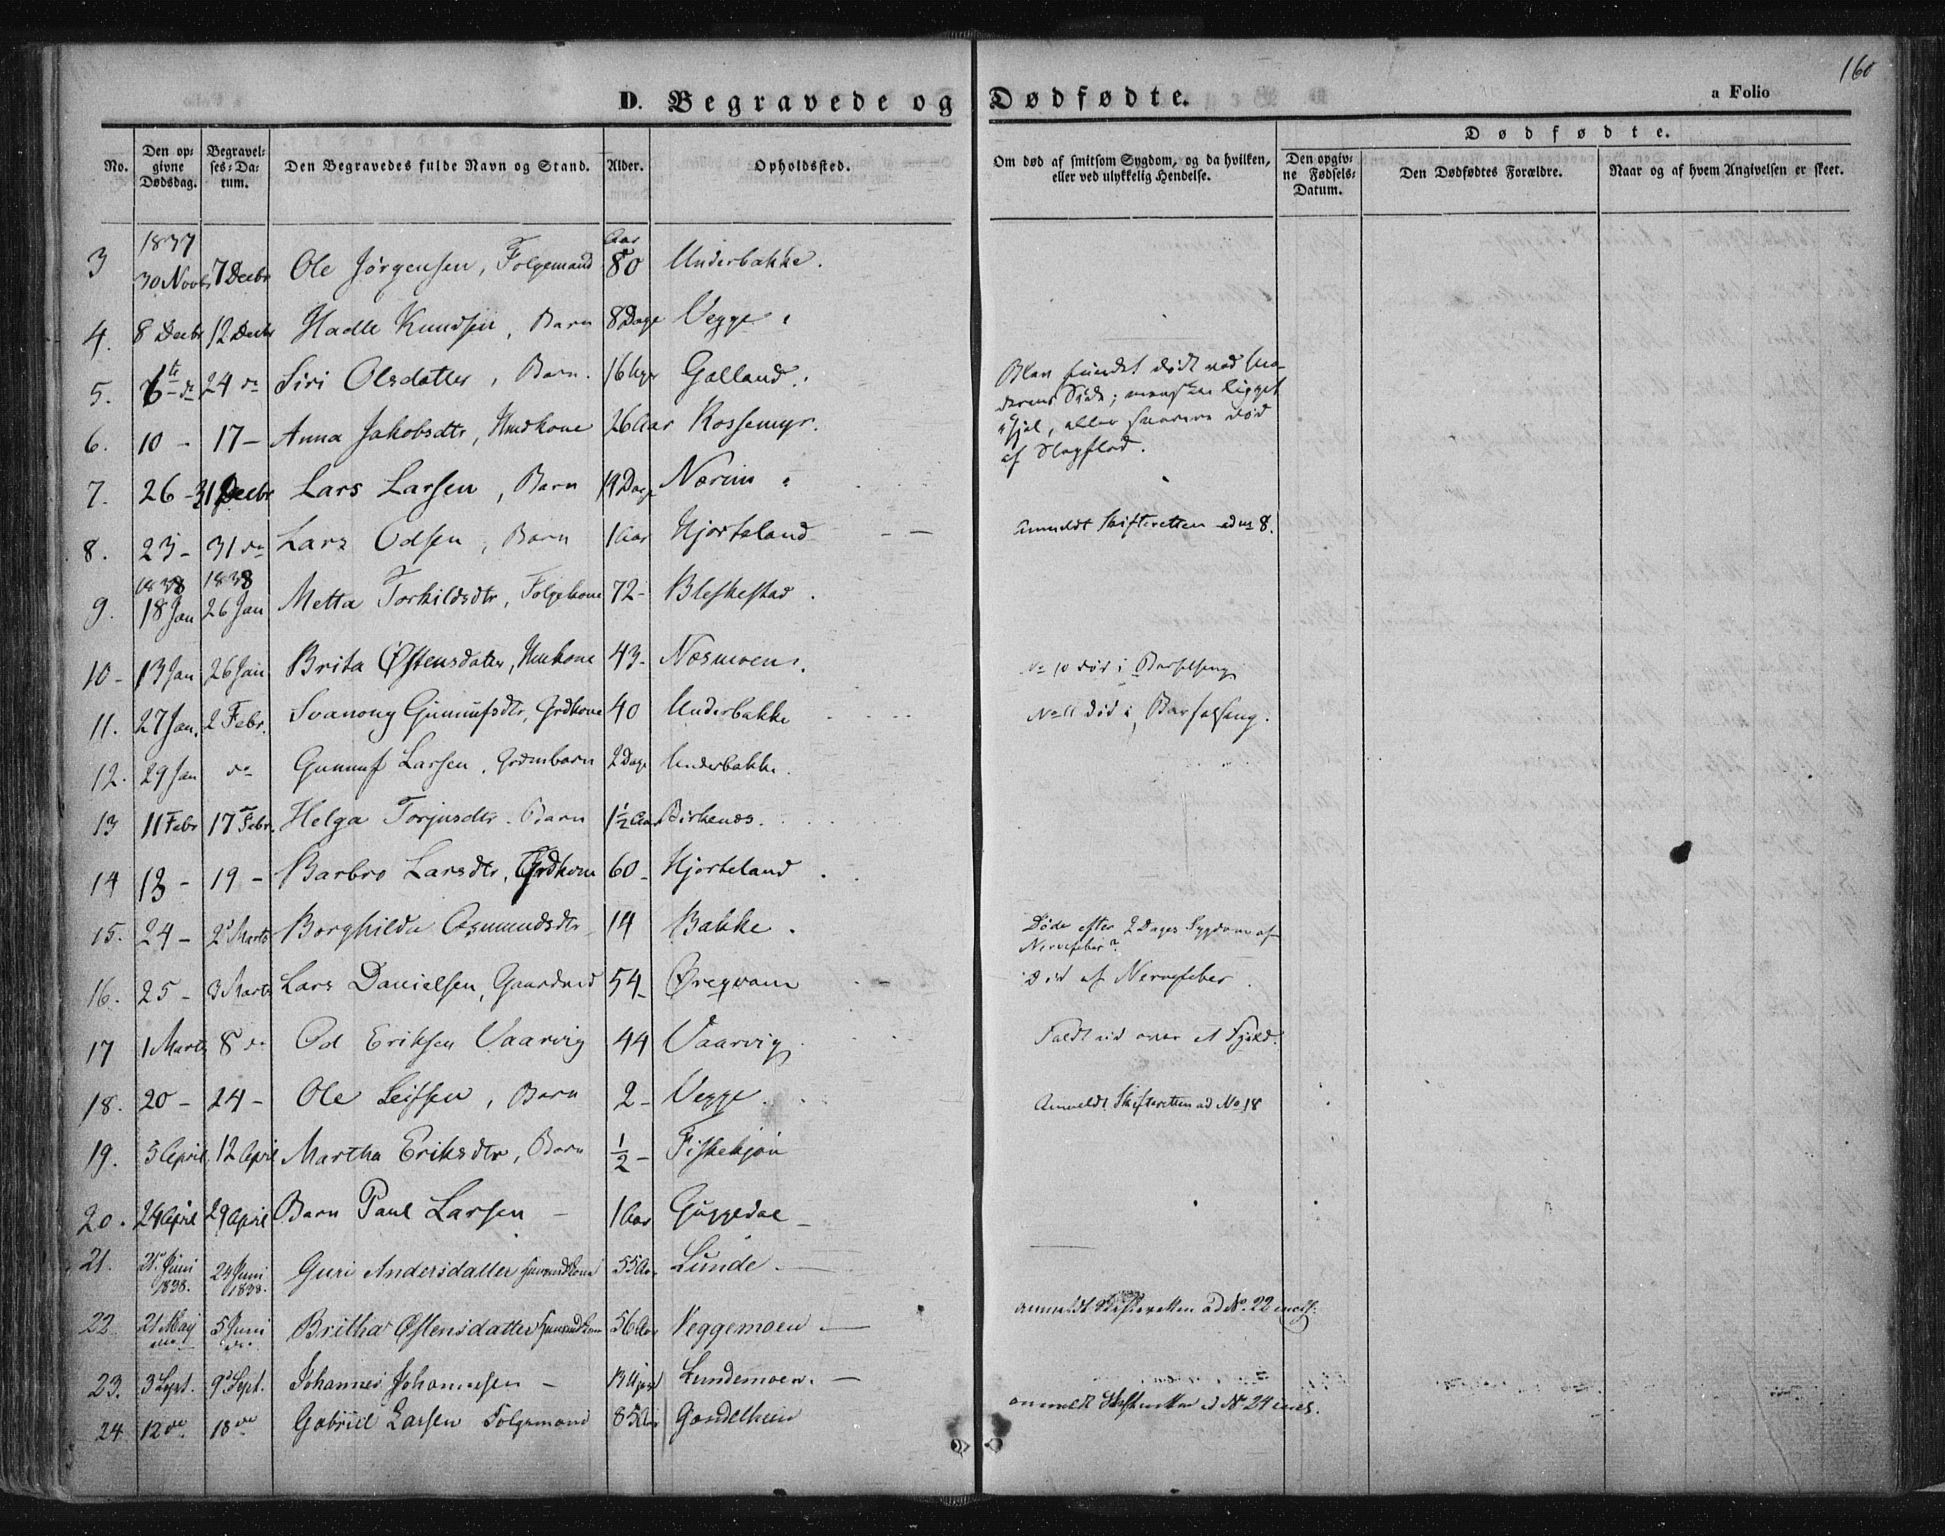 160
D. Begravede og Dødfødte.
a Folio
No.
Den opgivne Dødsdag.
Begravelses-Datum.
Den Begravedes fulde Navn og Stand.
Alder.
Opholdssted.
Om død af smitsom Sygdom, og da hvilken, eller ved ulykkelig Hendelse.
Dødfødte.
Den opgivne Fødsels-Datum.
Den Dødfødtes Forældre.
Naar og af hvem Angivelsen er skeet.
1837 Aar
3 30 Novbr 7 Decbr Ole Jørgensen, Folgemand 80 Underbakke.
4. 8 Decbr 12 Decbr Hadle Knudsen, Barn 8 Dage Vegge.
5. 6te do 24 do Siri Olsdatter, Barn. 16 Uger Galland. Blev fundet død ved Moderens Side;
6. 10 - 17 - Anna Jakobsdtr, Huuskone 26 Aar Rossemyr. af Slagflod.
7. 26 - 31 Decbr Lars Larsen, Barn 19 Dage Nærim
8. 23 - 31 do Lars Odsen, Barn 1 Aar Hjorteland anmeldt Skifteretten ad No 8.
1838 1838
9. 18 Jan 26 Jan Metta Torkildsdtr, Folgekone 72 - Bleskestad.
10 - 13 Jan 26 Jan Brita Østensdatter, Huuskone 43 - Næsmoen. No 10 død i Barselseng
11. 27 Jan. 2 Febr. Svanaug Gunnufsdtr, Grdkone 40 Underbakke No 11 død i Barselseng.
12. 29 Jan do Gunnuf Larsen, Grdmbarn 2 Dage Underbakke.
13 11 Febr 17 Febr. Helga Torjusdtr. Barn 1½ Aar Birkenes.
14 13 - 19 - Barbro Larsdtr, Grdkone 60 - Hjorteland.
15. 24 - 2 Marts Borghilda Asmundsdtr 14 Bakke. Døde efter 2 Dages Sygdom af
Nervefeber?
16. 25 - 3 Marts Lars Danielsen, Gaardmd 54 - Øreqvam Død af Nervefeber.
17 1 Marts 8 do Od Eriksen Vaarvig 44 Vaarvig Faldt ud over et Fjeld.
18. 20 - 24 - Ole Leifsen, Barn 2 - Vegge. Anmeldt Skifteretten ad No 18
19. 5 April 12 April Martha Eriksdtr, Barn ½ - Fiskekjøn
20. 24 April 29 April Barn Paul Larsen - 1 Aar Guggedal -
21. 21 Juni 1838. 24 Juni 1838. Guri Andersdatter Huusmdkone 55 Aar Lunde.
22. 21 May 5 Juni do Britha Østensdatter Huusmdkone 56 Aar Veggemoen - anmeldt Skifteretten ad No. 22
23. 3 Sept. 9 Sept. Johannes Johannesen - 13 Uger Lundemoen. -
24. 12 do 18 do Gabriel Larsen Folgemand 85 Aar anmeldt Skifteretten ad No 24